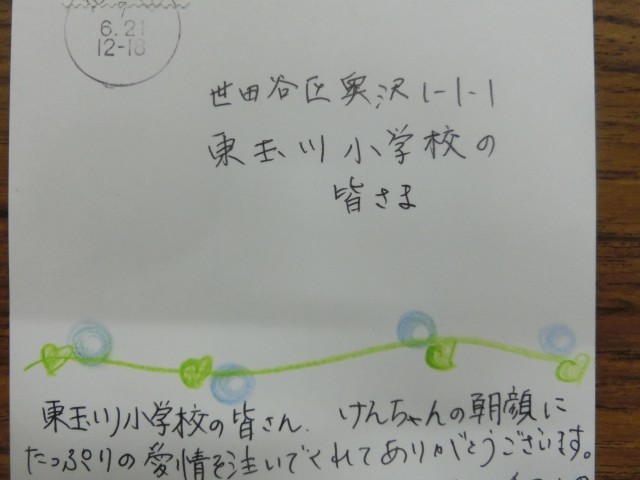 6.21
12-18
世田谷区奥沢1-1-1
東玉川小学校の
皆さま
東玉川小学校の皆さん、けんちゃんの朝顔に
たっぷりの愛情を注いでくれてありがとうございます。